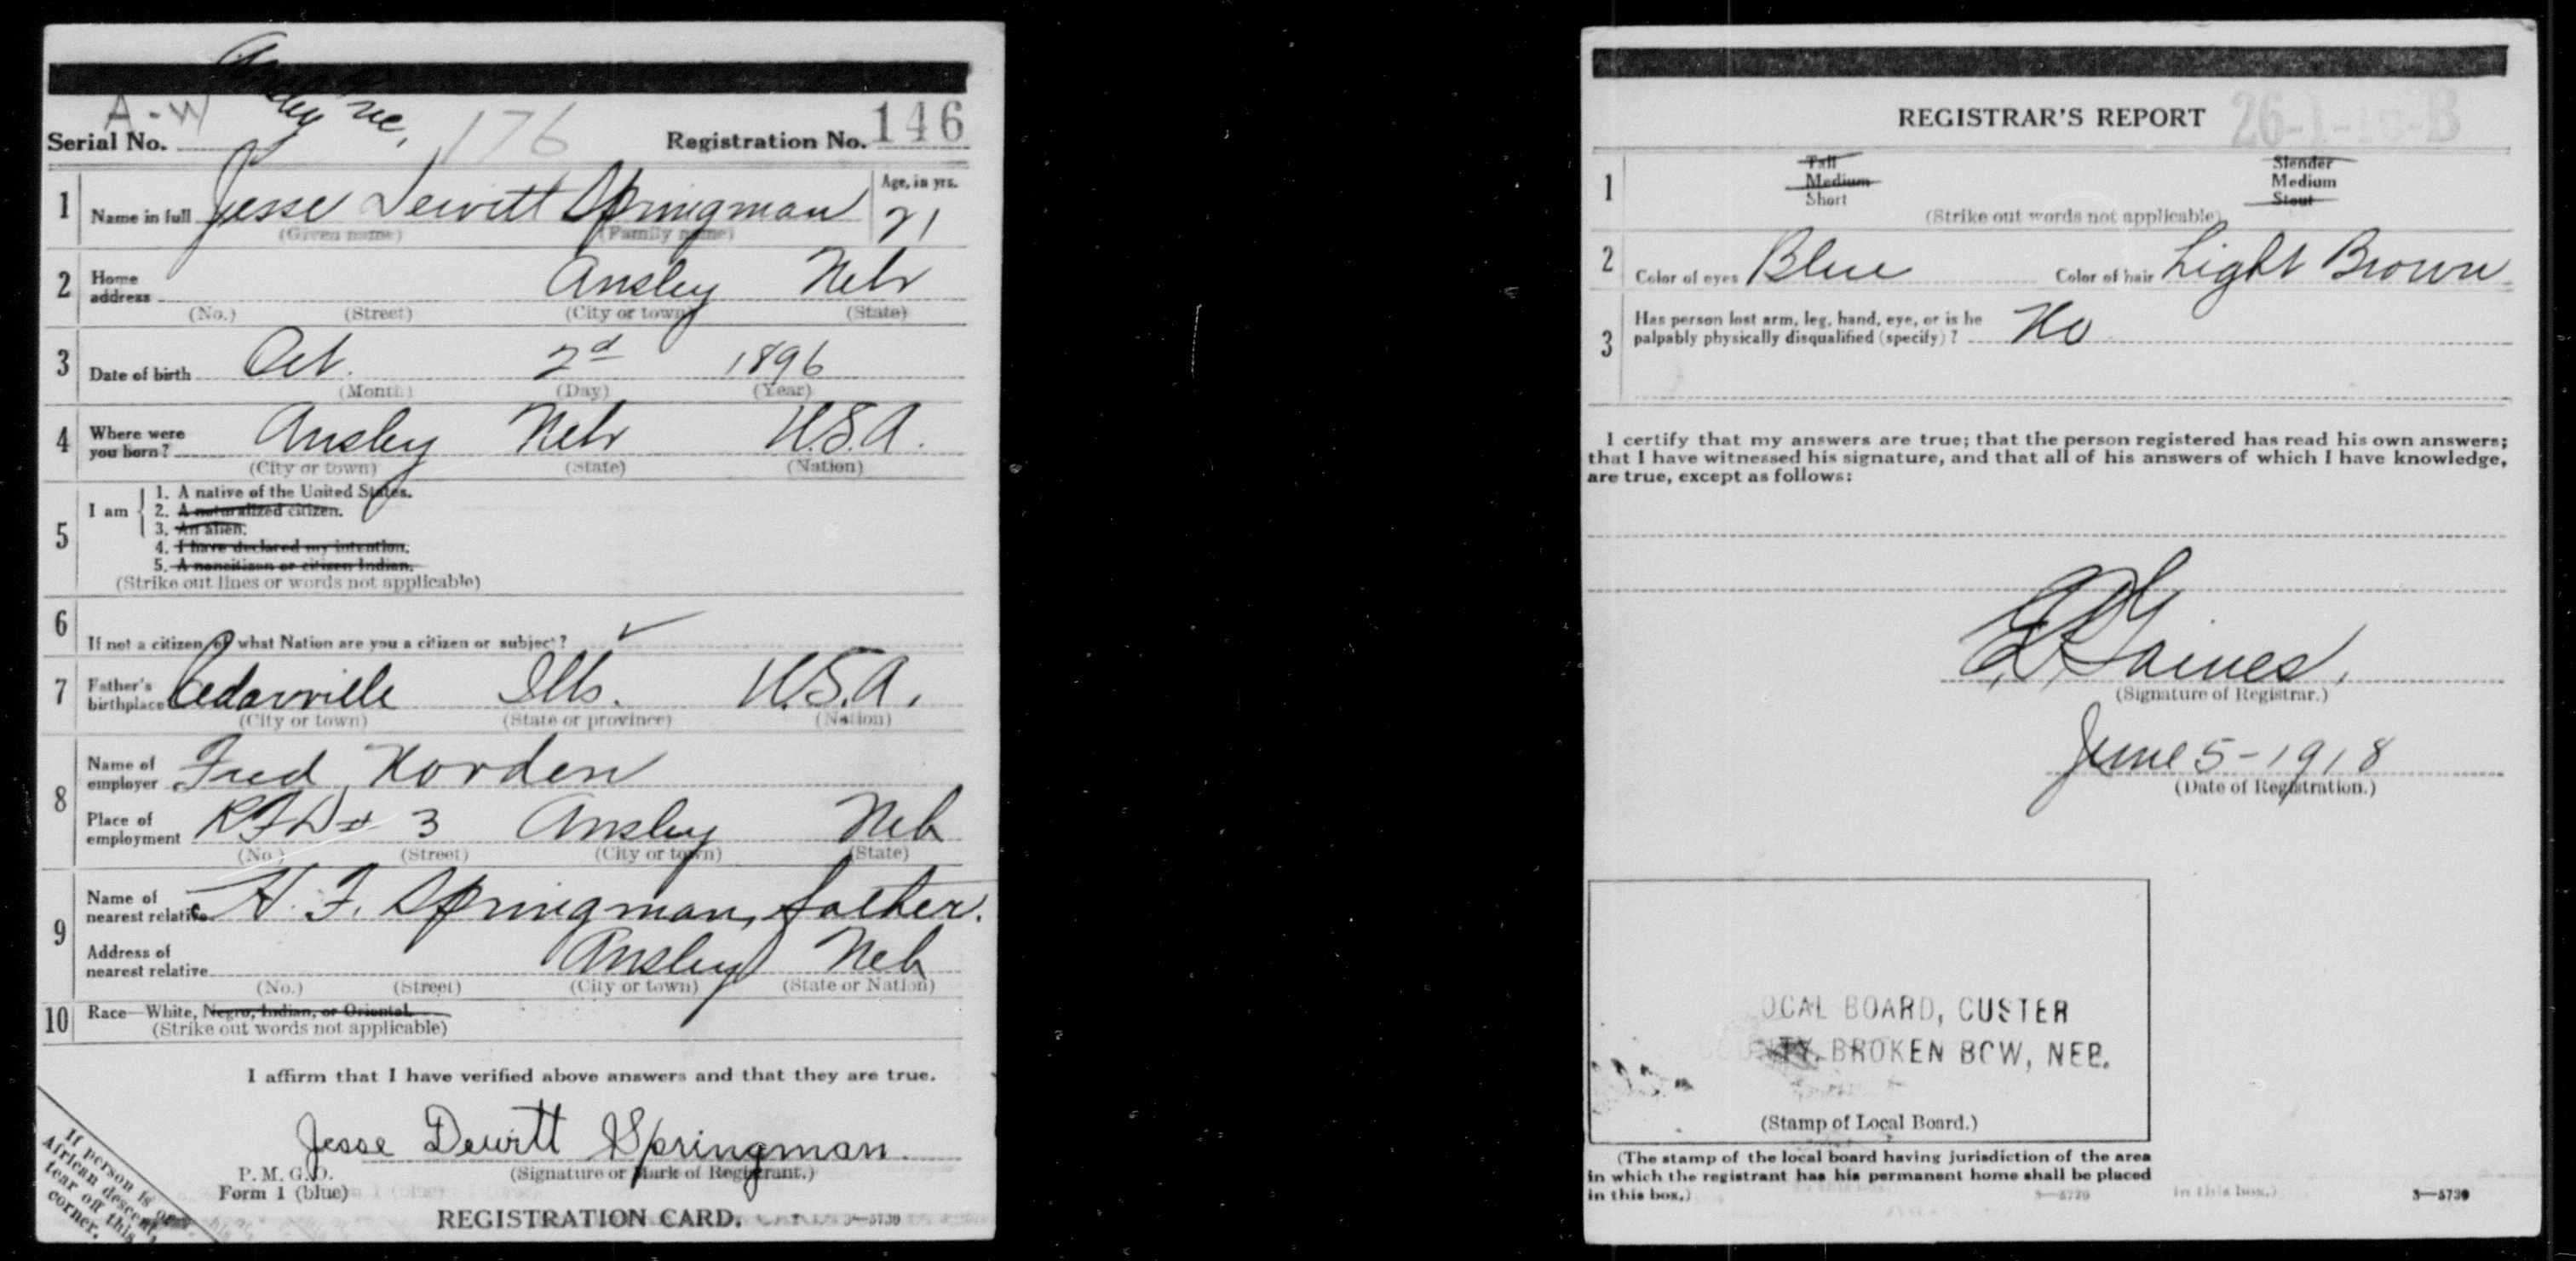 A-W Ansley Ne,
Serial No. 176 Registration No. 146
1 Name in full Jesse Dewitt Springman Age, in yrs. 21
(Given name) (Family name)
2 Home address Ansley Nebr
(No.) (Street) (City or town) (State)
3 Date of birth Oct. 2d 1896
(Month) (Day) (Year)
4 Where were you born? Ansley Nebr U.S.A.
(City or town) (State) (Nation)
5 I am
1. A native of the United States.
2. A naturalized citizen.
3. An alien.
4. I have declared my intention.
5. A noncitizen or citizen Indian.
(Strike out lines or words not applicable)
6 If not a citizen, of what Nation are you a citizen or subject? ✓
7 Father's birthplace Cedarville Ills. U.S.A.
(City or town) (State or province) (Nation)
8 Name of employer Fred Horden
Place of employment RFD # 3 Ansley Neb
(No.) (Street) (City or town) (State)
9 Name of nearest relative H. F. Springman, father.
Address of nearest relative Ansley Neb
(No.) (Street) (City or town) (State or Nation)
10 Race—White, Negro, Indian, or Oriental.
(Strike out words not applicable)
I affirm that I have verified above answers and that they are true.
Jesse Dewitt Springman
P. M. G. O.
Form 1 (blue)
(Signature or Mark of Registrant.)
REGISTRATION CARD. 3—5730
If person is of
African descent,
tear off this
corner.
REGISTRAR'S REPORT 26-1-10-B
1 Tall Slender
Medium Medium
Short Stout
(Strike out words not applicable)
2 Color of eyes Blue Color of hair Light Brown
3 Has person lost arm, leg, hand, eye, or is he
palpably physically disqualified (specify)? No
I certify that my answers are true; that the person registered has read his own answers;
that I have witnessed his signature, and that all of his answers of which I have knowledge,
are true, except as follows:
Gaines,
(Signature of Registrar.)
June 5-1918
(Date of Registration.)
OCAL BOARD, CUSTER
COUNTY, BROKEN BOW, NEB.
(Stamp of Local Board.)
(The stamp of the local board having jurisdiction of the area
in which the registrant has his permanent home shall be placed
in this box.)
in this box.)
3—5730